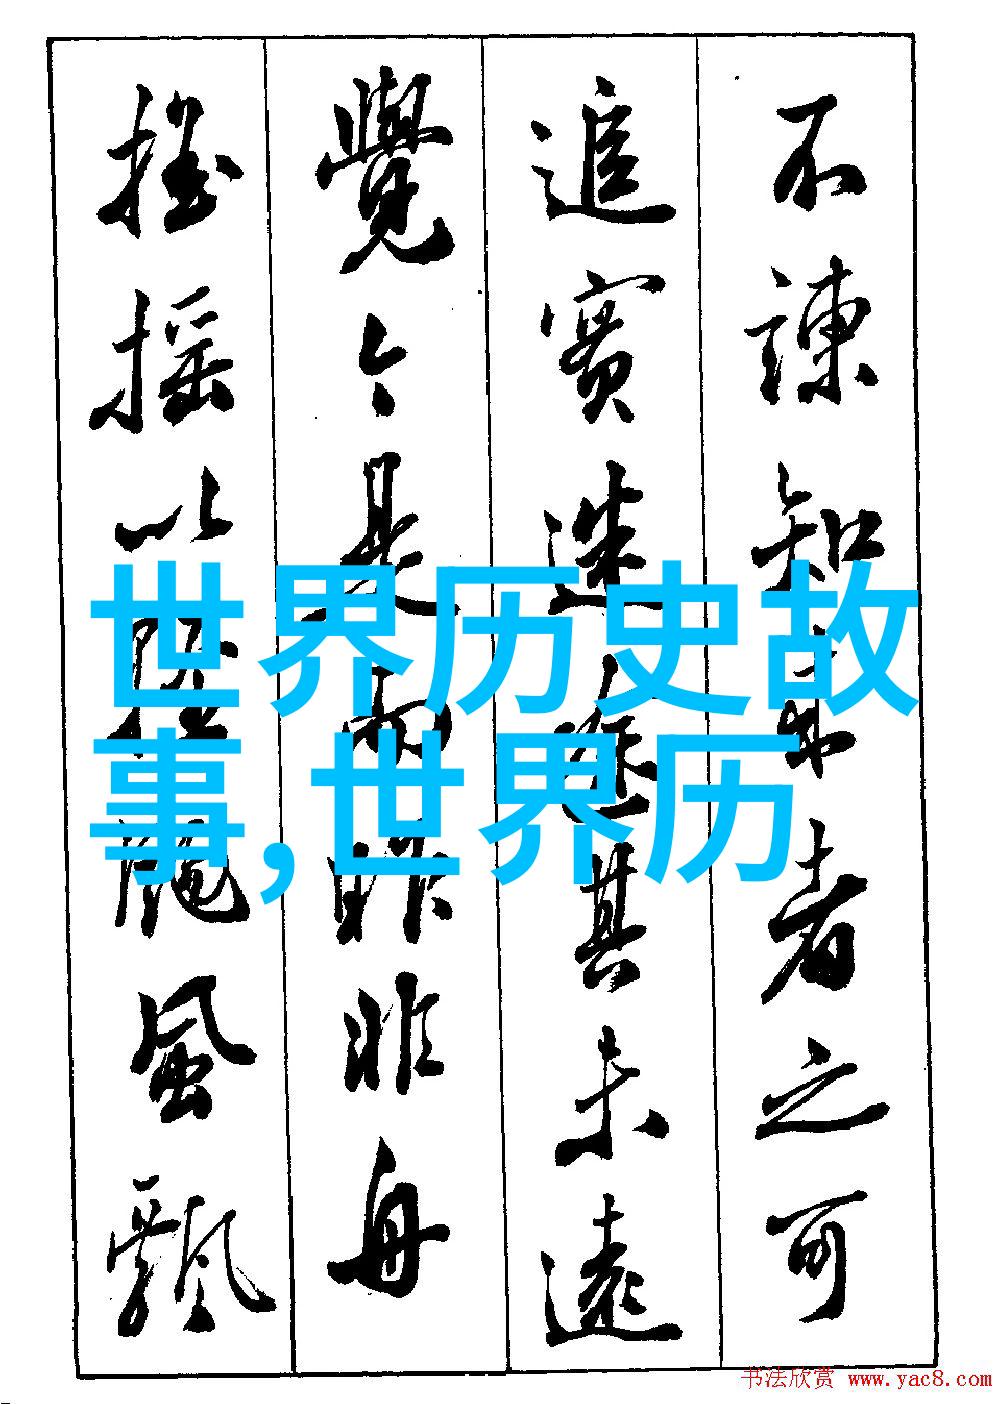 不諫知来者之可
追實迷途其未遠
覺今是而昨非舟
搖摇以輕颺風飄
世界历史故
事,世界历
书法欣赏 www.yac8.com